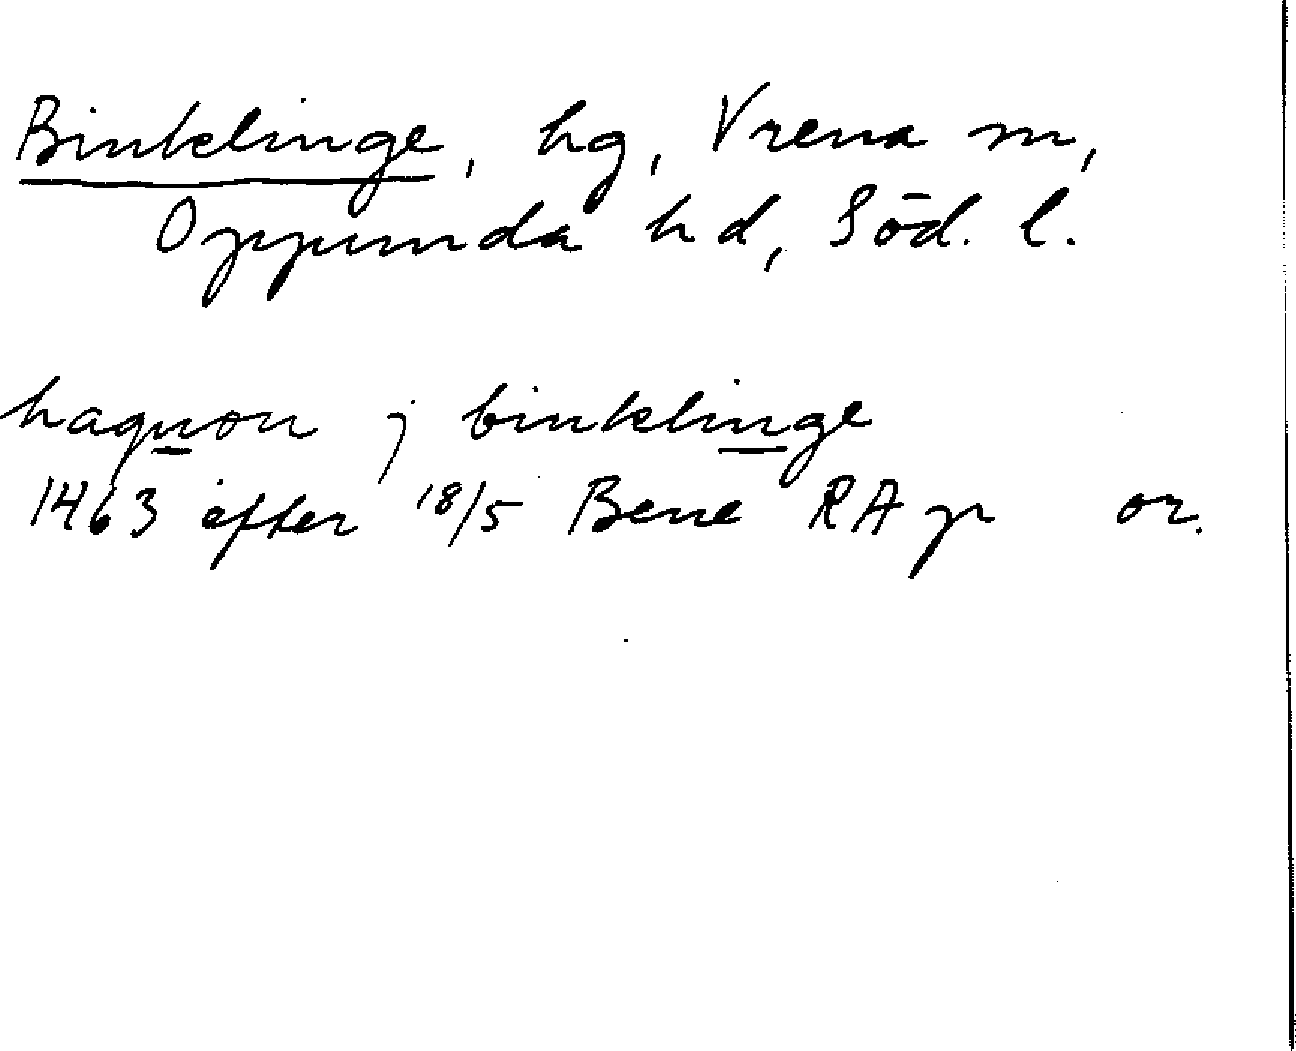 Binklinge, hg, Vrena sn,
Oppunda hd, Söd. l.
haquon j binklinge
1463 efter 18/5 Bene RAp or.